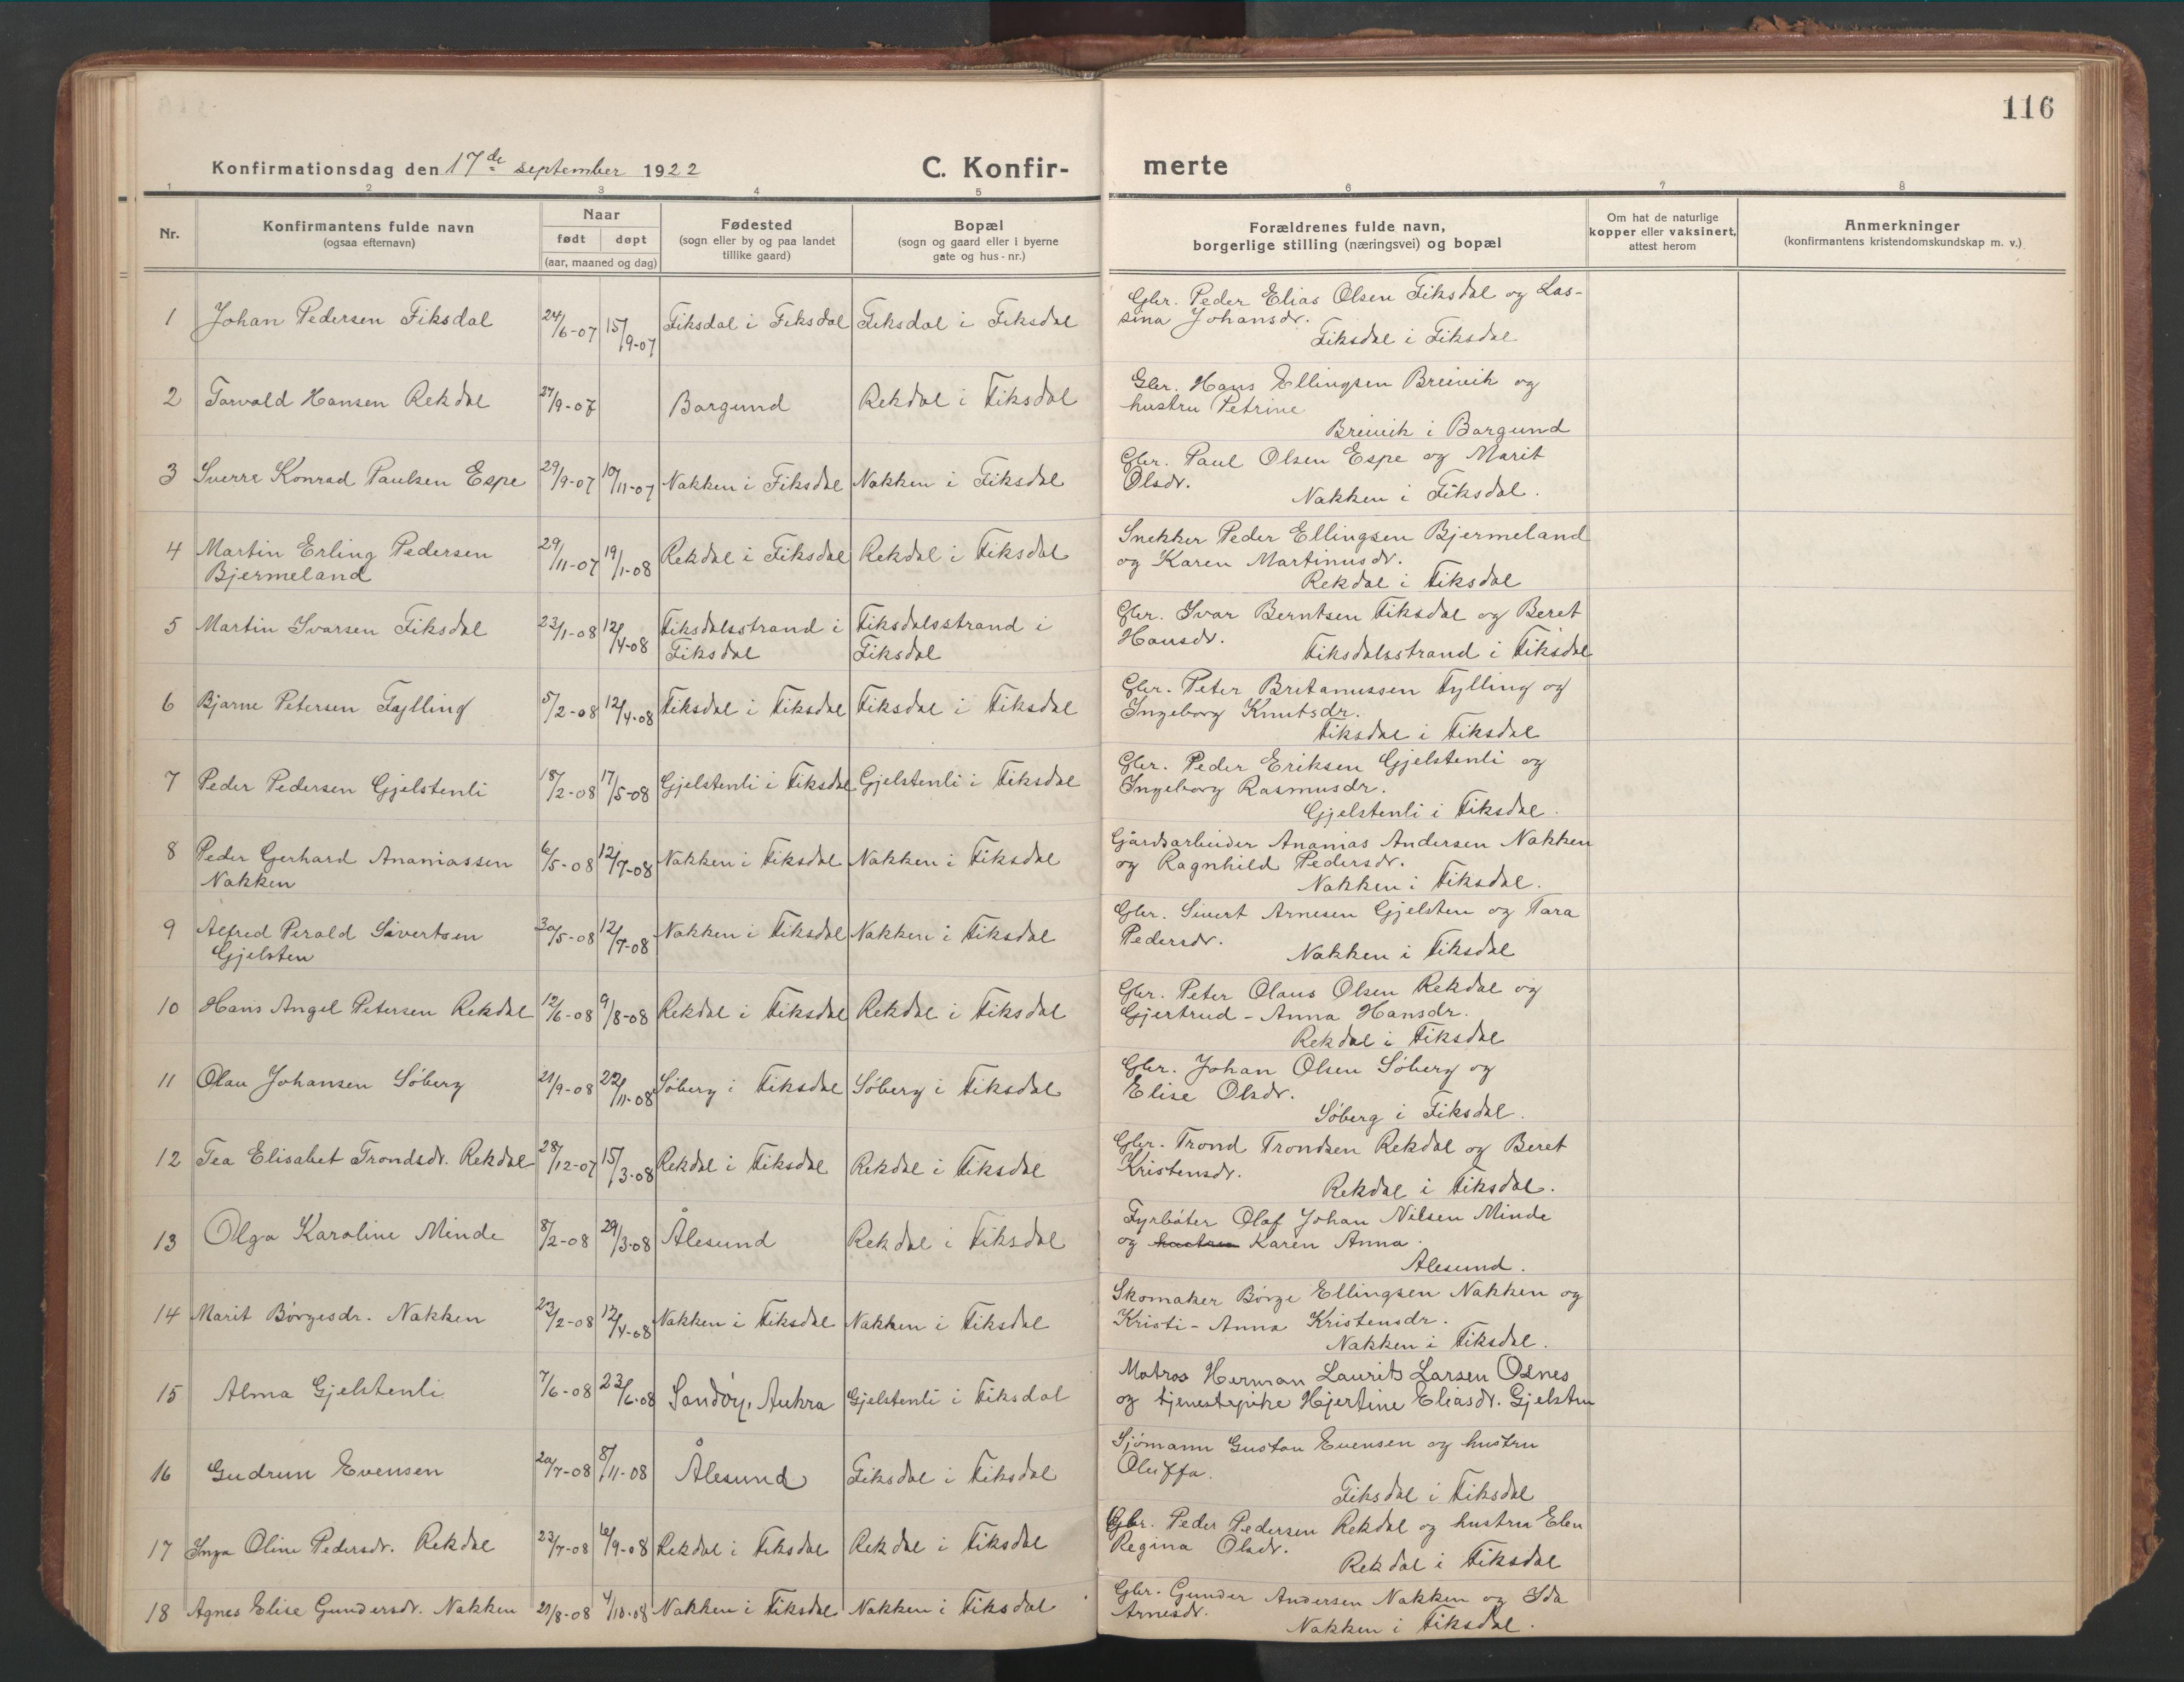 116
Konfirmationsdag den 17de september 1922
C. Konfir-
merte
1 2 3 4 5 6 7 8
Nr.
Konfirmantens fulde navn
(ogsaa efternavn)
Naar
født døpt
(aar, maaned og dag)
Fødested
(sogn eller by og paa landet
tillike gaard)
Bopæl
(sogn og gaard eller i byerne
gate og hus-nr.)
Forældrenes fulde navn,
borgerlige stilling (næringsvei) og bopæl
Om hat de naturlige
kopper eller vaksinert,
attest herom
Anmerkninger
(konfirmantens kristendomskundskap m. v.)
1 Johan Pedersen Fiksdal 24/6-07 15/9-07 Fiksdal i Fiksdal Fiksdal i Fiksdal
Gbr. Peder Elias Olsen Fiksdal og Las-
sina Johansdr.
Fiksdal i Fiksdal
2 Torvald Hansen Rekdal 27/9-07 Borgund Rekdal i Fiksdal
Gbr. Hans Ellingsen Breivik og
hustru Petrine
Breivik i Borgund
3 Sverre Konrad Paulsen Espe 29/9-07 10/11-07 Nakken i Fiksdal Nakken i Fiksdal
Gbr. Paul Olsen Espe og Marit
Olsdr.
Nakken i Fiksdal.
4 Martin Erling Pedersen
Bjermeland 29/11-07 19/1-08 Rekdal i Fiksdal Rekdal i Fiksdal
Snekker Peder Ellingsen Bjermeland
og Karen Martinusdr.
Rekdal i Fiksdal
5 Martin Ivarsen Fiksdal 23/1-08 12/4-08 Fiksdalsstrand i Fiksdalsstrand i
Fiksdal Fiksdal
Gbr. Ivar Berntsen Fiksdal og Beret
Hansdr.
Fiksdalsstrand i Fiksdal
6 Bjarne Petersen Fylling 5/2-08 12/4-08 Fiksdal i Fiksdal Fiksdal i Fiksdal
Gbr. Peter Bretanussen Fylling og
Ingeborg Knutsdr.
Fiksdal i Fiksdal
7 Peder Pedersen Gjelstenli 18/2-08 17/5-08 Gjelstenli i Fiksdal Gjelstenli i Fiksdal
Gbr. Peder Eriksen Gjelstenli og
Ingeborg Rasmusdr.
Gjelstenli i Fiksdal.
8 Peder Gerhard Ananiassen
Nakken 6/5-08 12/7-08 Nakken i Fiksdal Nakken i Fiksdal
Gårdsarbeider Ananias Andersen Nakken
og Ragnhild Pedersdr.
Nakken i Fiksdal.
9 Alfred Perald Sivertsen
Gjelsten 30/5-08 12/7-08 Nakken i Fiksdal Nakken i Fiksdal
Gbr. Sivert Arnesen Gjelsten og Tara
Pedersdr.
Nakken i Fiksdal
10 Hans Angel Petersen Rekdal 12/6-08 9/8-08 Rekdal i Fiksdal Rekdal i Fiksdal
Gbr. Peter Olaus Olsen Rekdal og
Gjertrud-Anna Hansdr.
Rekdal i Fiksdal
11 Olav Johansen Söberg 21/9-08 22/11-08 Söberg i Fiksdal Söberg i Fiksdal
Gbr. Johan Olsen Söberg og
Elise Olsdr.
Söberg i Fiksdal.
12 Tea Elisabet Trondsdr. Rekdal 28/12-07 15/3-08 Rekdal i Fiksdal Rekdal i Fiksdal
Gbr. Trond Trondsen Rekdal og Beret
Kristensdr.
Rekdal i Fiksdal.
13 Olga Karoline Minde 8/2-08 29/3-08 Ålesund Rekdal i Fiksdal
Fyrböter Olaf Johan Nilsen Minde
og hustru Karen Anna.
Ålesund.
14 Marit Börgesdr. Nakken 23/2-08 12/4-08 Nakken i Fiksdal Nakken i Fiksdal
Skomaker Börge Ellingsen Nakken og
Kristi-Anna Kristensdr.
Nakken i Fiksdal.
15 Alma Gjelstenli 7/6-08 23/6-08 Sandöy, Aukra Gjelstenli i Fiksdal
Matros Herman Laurits Larsen Osnes
og tjenestepike Hjertine Eliasdr. Gjelsten
16 Gudrun Evensen 20/7-08 8/11-08 Ålesund Fiksdal i Fiksdal
Sjömann Gustav Evensen og hustru
Oluffa.
Fiksdal i Fiksdal
17 Inga Oline Pedersdr. Rekdal 23/7-08 6/9-08 Rekdal i Fiksdal Rekdal i Fiksdal
Gbr. Peder Pedersen Rekdal og hustru Elen
Regina Olsdr.
Rekdal i Fiksdal
18 Agnes Elise Gundersdr. Nakken 21/8-08 4/10-08 Nakken i Fiksdal Nakken i Fiksdal
Gbr. Gunder Andersen Nakken og Ida
Arnesdr.
Nakken i Fiksdal.